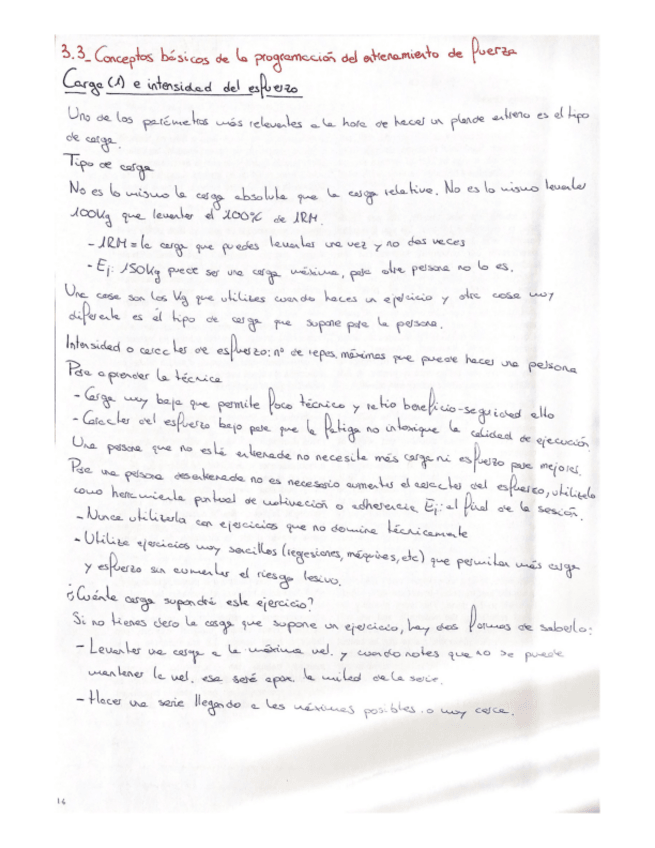 3.3_ Conceptos básicos de la programación del entrenamiento de fuerza
Carga (1) e intensidad del esfuerzo
Uno de los parámetros más relevantes a la hora de hacer un plan de entreno es el tipo
de carga.
Tipo de carga
No es lo mismo la carga absoluta que la carga relativa. No es lo mismo levantar
100Kg que levantar el 100% de 1RM.
- 1RM = la carga que puedes levantar una vez y no dos veces
- Ej: 150Kg puede ser una carga máxima, para otra persona no lo es.
Una cosa son los Kg que utilizas cuando haces un ejercicio y otra cosa muy
diferente es el tipo de carga que supone para la persona.
Intensidad o caracter de esfuerzo: nº de repes. máximas que puede hacer una persona
Para aprender la técnica
- Carga muy baja que permite foco técnico y ratio beneficio-seguridad alto
- Caracter del esfuerzo bajo para que la fatiga no intoxique la calidad de ejecución
Una persona que no está entrenada no necesita más carga ni esfuerzo para mejorar.
Para una persona desentrenada no es necesario aumentar el caracter del esfuerzo, utilízalo
como herramienta puntual de motivación o adherencia Ej: al final de la sesión.
- Nunca utilizarla con ejercicios que no domine técnicamente
- Utiliza ejercicios muy sencillos (regresiones, máquinas, etc) que permitan más carga
y esfuerzo sin aumentar el riesgo lesivo.
¿Cuánta carga supondrá este ejercicio?
Si no tienes claro la carga que supone un ejercicio, hay dos formas de saberlo:
- Levantar una carga a la máxima vel. y cuando notes que no se puede
mantener la vel. esa será aprox. la mitad de la serie.
- Hacer una serie llegando a las máximas posibles o muy cerca.
16